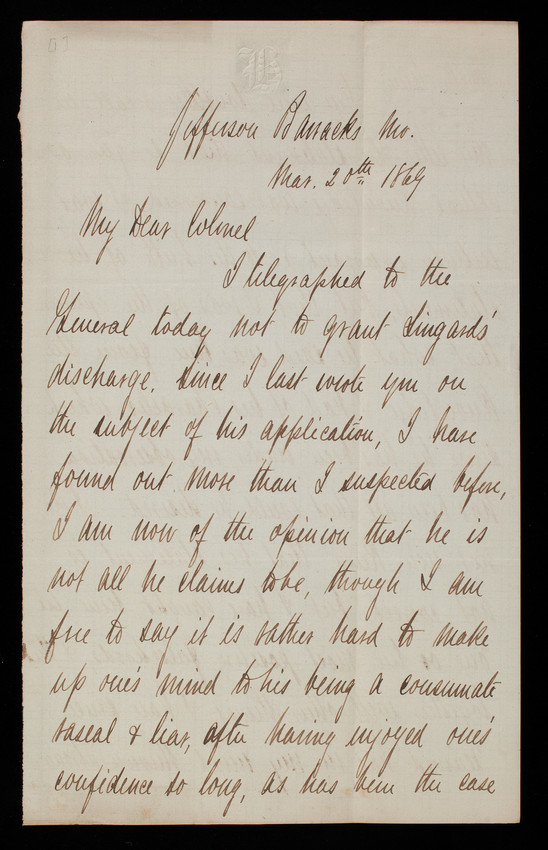 07
B
Jefferson Barracks Mo.
Mar. 20th 1869
My Dear Colonel
I telegraphed to the
General today not to grant Lingards'
discharge. Since I last wrote you on
the subject of his application, I have
found out more than I suspected before,
I am now of the opinion that he is
not all he claims to be, though I am
free to say it is rather hard to make
up one's mind to his being a consumate
rascal & liar, after having enjoyed one's
confidence so long, as has been the case